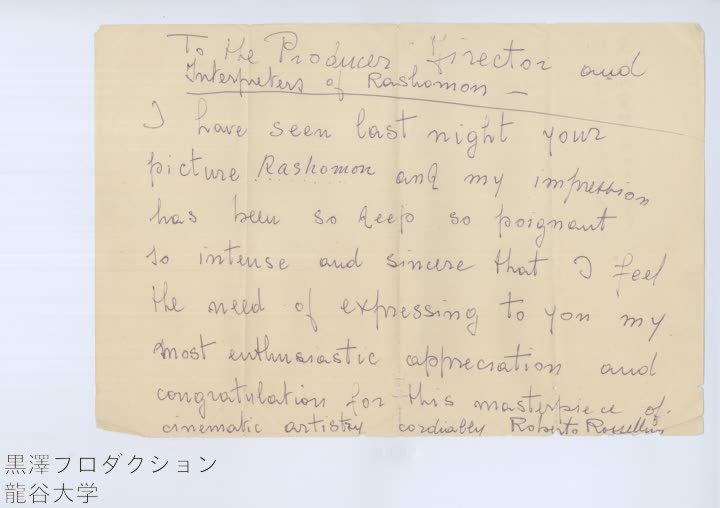 To the Producer Director and
Interpreters of Rashomon -
I have seen last night your
picture Rashomon and my impression
has been so deep so poignant
so intense and sincere that I feel
the need of expressing to you my
most enthusiastic appreciation and
congratulation for this masterpiece of
cinematic artistry cordially Roberto Rossellini
黒澤フロダクション
龍谷大学